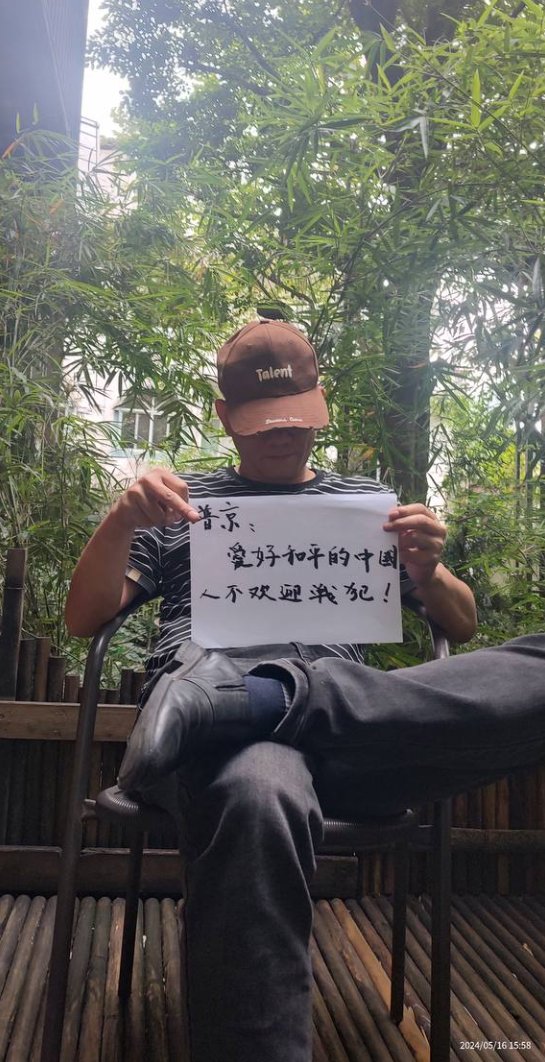 Talent
普京:
愛好和平的中國
人不欢迎战犯!
2024/05/16 15:58